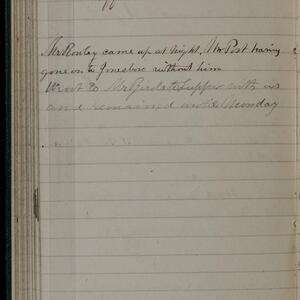 Mr Rowley came up at night, Mr Post having
gone on to Jonesboro without him
Went to Mr supper with us
and remained until Monday